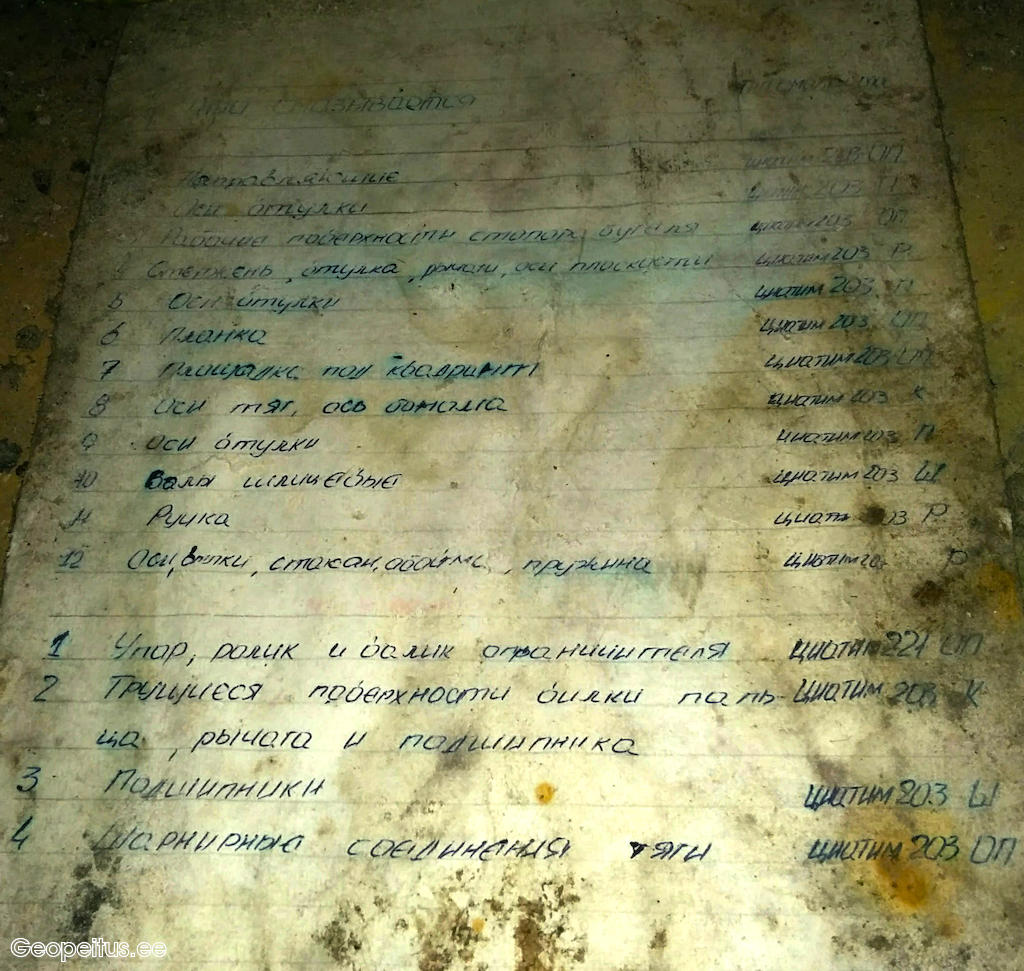 смазывается
Направляющие циатим 203 ОП
Оси втулки циатим 203 П
Рабочие поверхности стопора бугеля циатим 203 ОП
4 Стержень, втулка, рычаги, оси плоскости циатим 203 Р
5 Оси втулки циатим 203 П
6 Планка циатим 203 ОП
7 Площадка под квадрант циатим 203 ОП
8 Оси тяг, ось циатим 203 К
9 Оси втулки циатим 203 П
10 Валы шлицевые циатим 203 Ш
11 Ручка циатим 203 Р
12 Оси, втулки, стакан, обойма, пружина циатим 203 Р
1 Упор, ролик и валик ограничителя циатим 221 ОП
2 Трущиеся поверхности вилки паль- циатим 203 К
ца, рычага и подшипника
3 Подшипники циатим 203 Ш
4 Шарнирные соединения тяги циатим 203 ОП
Geopeitus.ee